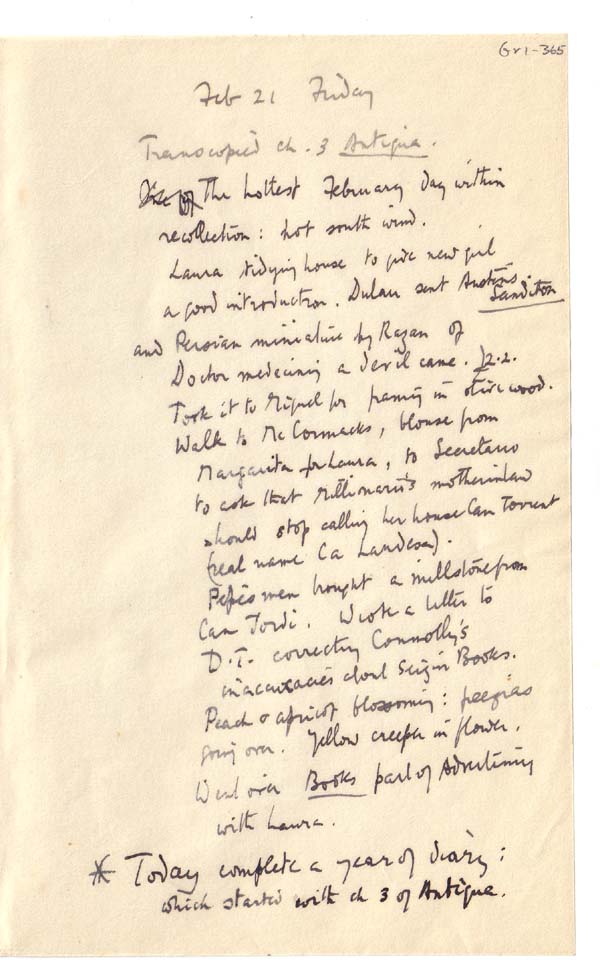 Gr1-365
Feb 21 Friday
Transcopied ch. 3 Antigua.
The hottest February day within
recollection: hot south wind.
Laura tidying house to give new girl
a good introduction. Dulau sent Austen's
Sanditon
and Persian miniature by Razan of
Doctor medecining a devil came. 12.2.
Took it to Miguel for framing in olive wood.
Walk to McCormacks, blouse from
Margarita for Laura, to Secretario
to ask that Millionario's motherinlaw
should stop calling her house Can Torrent
(real name Ca Landesa).
Pepe's men brought a millstone from
Can Jordi. Wrote a letter to
D.T. correcting Connolly's
inaccuracies about Seizin Books.
Peach & apricot blossoming: freezias
going over. Yellow creeper in flower.
Went over Books part of Advertising
with Laura.
* Today complete a year of diary:
which started with ch 3 of Antigua.